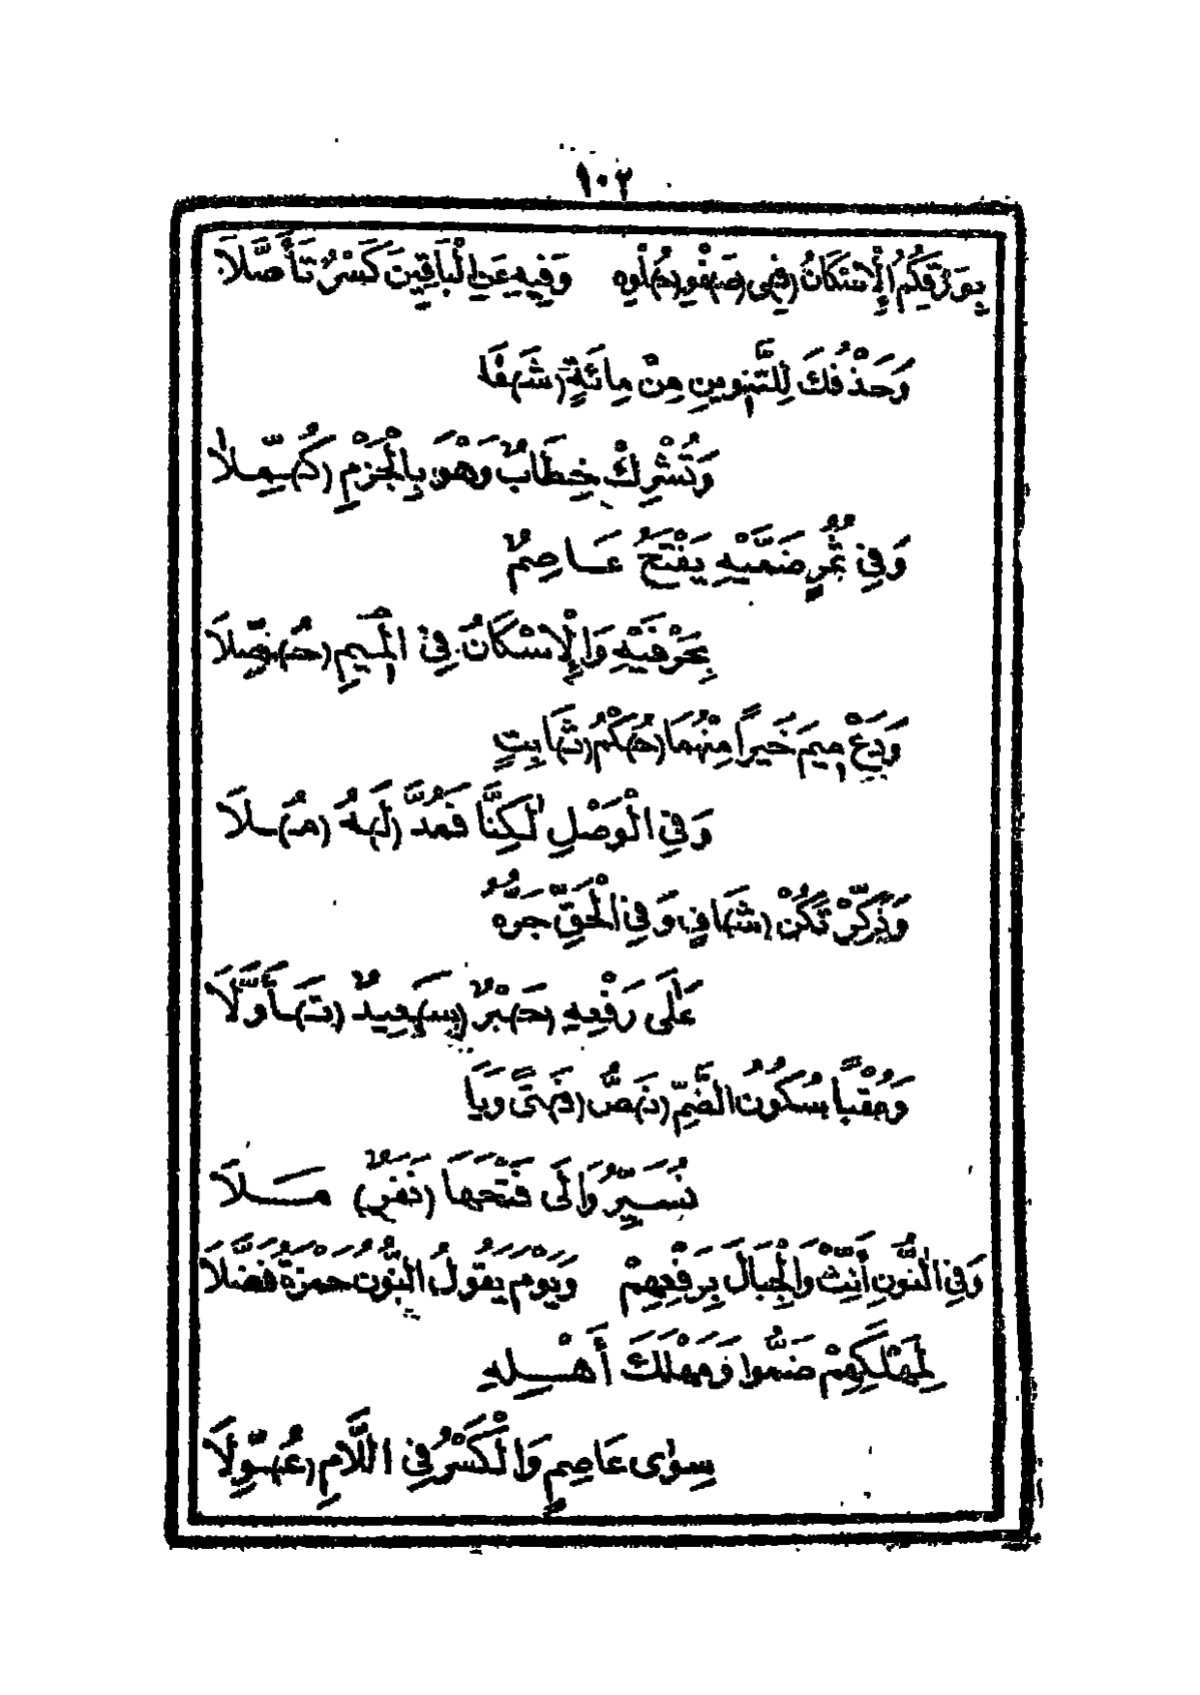 ١٠٢
بِوَرْقِكُمُ الْإِسْكَانُ (فِ)ـي (صَـ)ـفْوِ (حُـ)ـلْوِهِ وَفِيهِ عَنِ الْبَاقِينَ كَسْرٌ تَأَصَّلَا
وَحَذْفُكَ لِلتَّنْوِينِ مِنْ مِائَةٍ (شَـ)ـفَا
وَتُشْرِكْ خِطَابٌ وَهْوَ بِالْجَزْمِ (كُـ)ـمِّلَا
وَفِي ثُمُرٍ ضَمَّيْهِ يَفْتَحُ عَاصِمٌ
بِحَرْفَيْهِ وَالْإِسْكَانُ فِي الْمِيمِ (حُـ)ـصِّلَا
وَدَعْ مِيمَ خَيْراً مِنْهُمَا (حُـ)ـكْمُ (ثَـ)ـابِتٍ
وَفِي الْوَصْلِ لٰكِنَّا فَمُدَّ (لَـ)ـهُ (مُـ)ـلَا
وَذَكِّرْ تَكُنْ (شَـ)ـافٍ وَفِي الْحَقِّ جَرُّهُ
عَلٰى رَفْعِهِ (حَـ)ـبْرٌ (سَـ)ـعِيدٌ (تَـ)ـأَوَّلَا
وَعُقْباً سُكُونُ الضَّمِّ (نَـ)ـصُّ (فَـ)ـتًى وَيَا
نُسَيِّرُ وَالَى فَتْحَهَا (نَفَرٌ) مَلَا
وَفِي النُّونِ أَنِّثْ وَالْجِبَالَ بِرَفْعِهِمْ وَيَوْمَ يَقُولُ النُّونُ حَمْزَةُ فَضَّلَا
لِمَهْلَكِهِمْ ضَمُّوا وَمَهْلَكَ أَهْلِهِ
سِوٰى عَاصِمٍ وَالْكَسْرُ فِي اللَّامِ (عُـ)ـوِّلَا